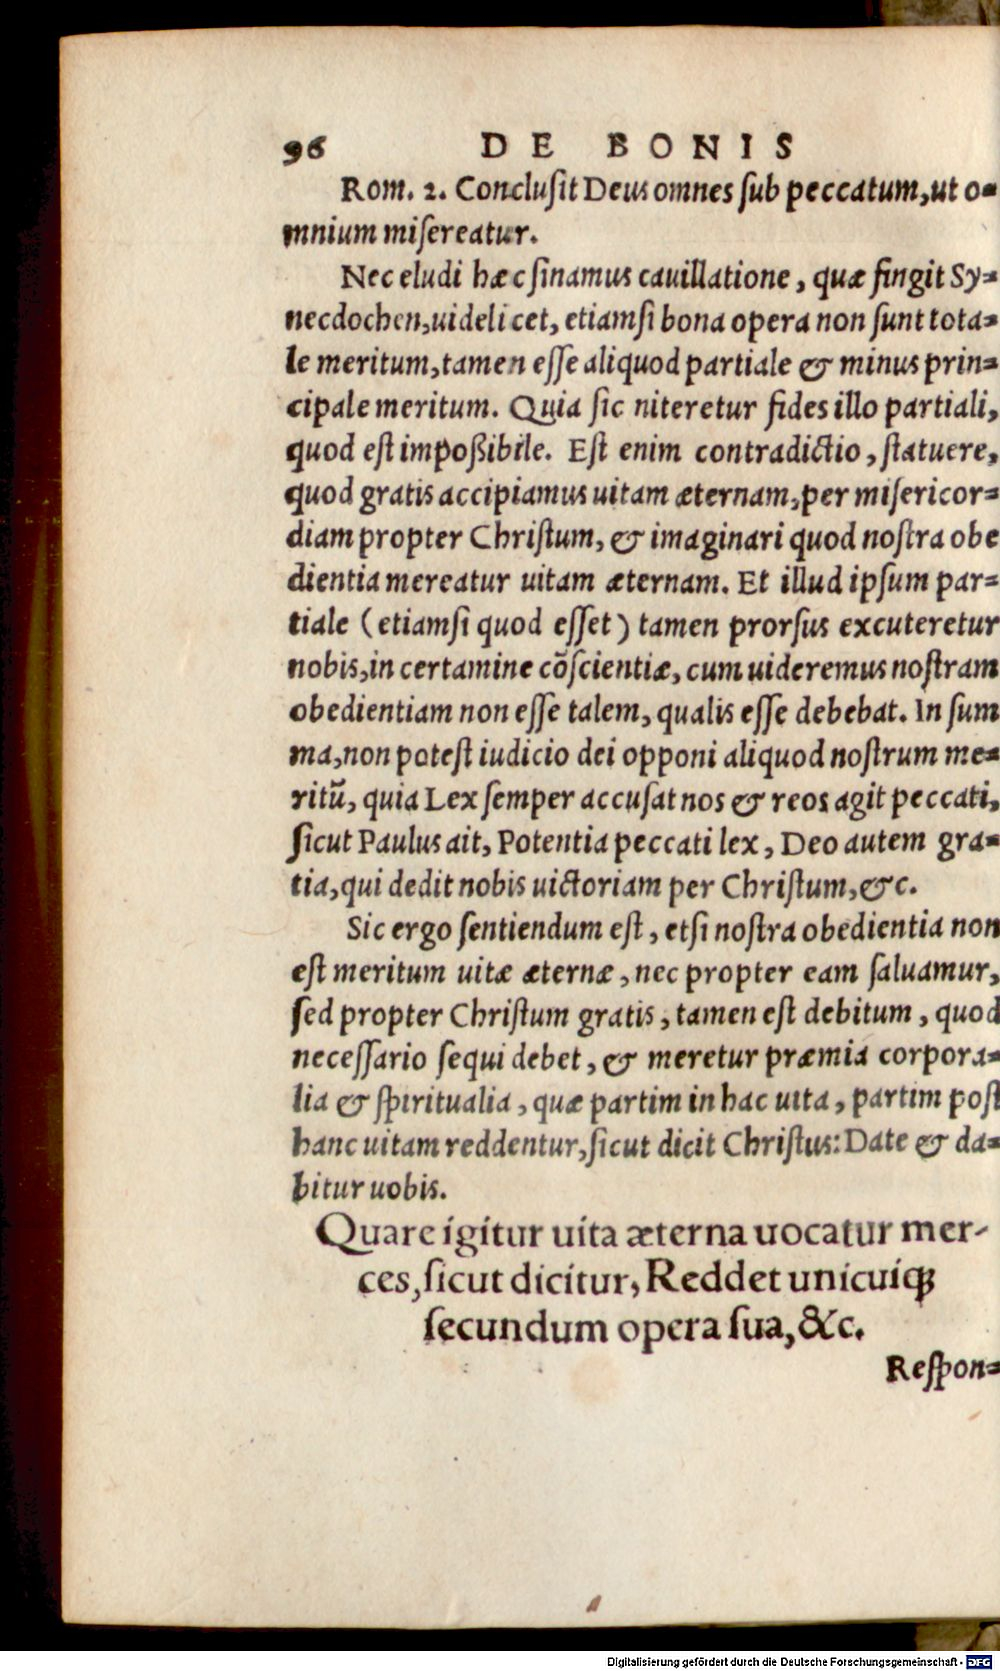 96 DE BONIS
Rom. 2. Conclusit Deus omnes sub peccatum, ut o=
mnium misereatur.
Nec eludi hæc sinamus cauillatione, quæ fingit Sy=
necdochen, uidelicet, etiamsi bona opera non sunt tota=
le meritum, tamen esse aliquod partiale & minus prin=
cipale meritum. Quia sic niteretur fides illo partiali,
quod est impoßibile. Est enim contradictio, statuere,
quod gratis accipiamus uitam æternam, per misericor=
diam propter Christum, & imaginari quod nostra obe
dientia mereatur uitam æternam. Et illud ipsum par=
tiale (etiamsi quod esset) tamen prorsus excuteretur
nobis, in certamine cōscientiæ, cum uideremus nostram
obedientiam non esse talem, qualis esse debebat. In sum
ma, non potest iudicio dei opponi aliquod nostrum me=
ritū, quia Lex semper accusat nos & reos agit peccati,
sicut Paulus ait, Potentia peccati lex, Deo autem gra=
tia, qui dedit nobis uictoriam per Christum, &c.
Sic ergo sentiendum est, etsi nostra obedientia non
est meritum uitæ æternæ, nec propter eam saluamur,
sed propter Christum gratis, tamen est debitum, quod
necessario sequi debet, & meretur præmia corpora=
lia & spiritualia, quæ partim in hac uita, partim post
hanc uitam reddentur, sicut dicit Christus: Date & da=
bitur uobis.
Quare igitur uita æterna uocatur mer-
ces, sicut dicitur, Reddet unicuiq;
secundum opera sua, &c.
Respon=
Digitalisierung gefördert durch die Deutsche Forschungsgemeinschaft - DFG